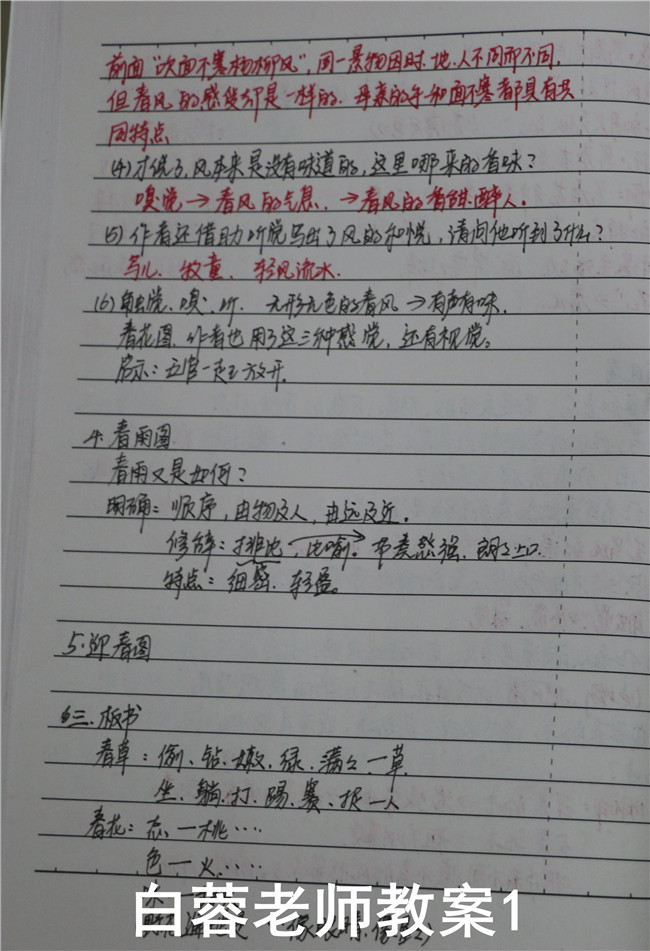 前面“吹面不寒杨柳风”，同一景物因时.地.人不同而不同，
但春风的感觉却是一样的.母亲的手和面不寒都具有共
同特点
(4)才说了风本来是没有味道的，这里哪来的香味？
嗅觉→春风的气息，→春风的香甜醉人。
(5)作者还借助听觉写出了风的和悦，请问他听到了什么？
鸟儿、牧童、轻风流水.
(6)触觉、嗅、听. 无形无色的春风→有声有味.
春花图.作者也用了这三种感觉，还有视觉。
启示：五官一起放开.
4.春雨图
春雨又是如何？
明确：顺序，由物及人，由远及近。
修辞：排比，比喻。节奏感强.朗朗上口.
特点：细密.轻盈。
5.迎春图
三.板书
春草：偷、钻、嫩、绿、满满一草.
坐、躺、打、踢、赛、捉一人
春花：态一桃····
色一火····
白蓉老师教案1